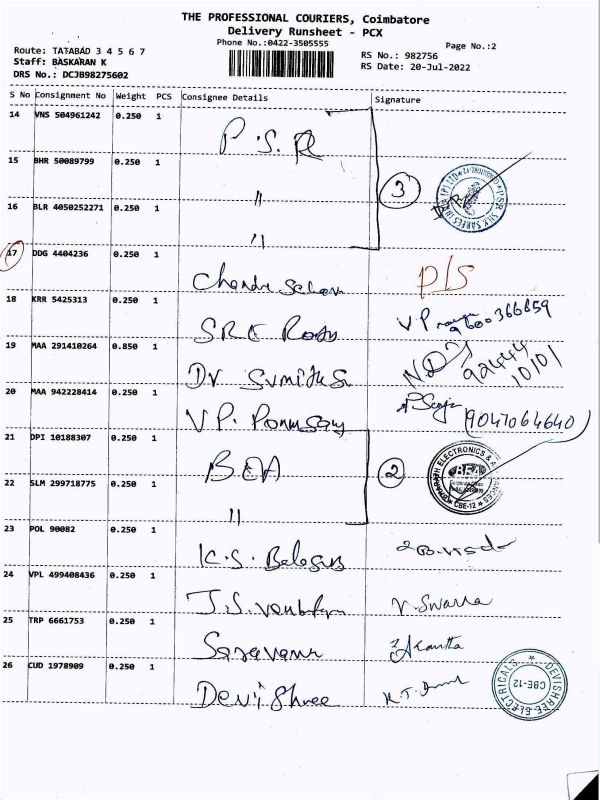 THE PROFESSIONAL COURIERS, Coimbatore
Delivery Runsheet - PCX
Phone No.:0422-3505555
Page No.:2
Route: TATABAD 3 4 5 6 7
Staff: BASKARAN K
DRS No.: DCJB98275602
RS No.: 982756
RS Date: 20-Jul-2022
S No Consignment No Weight PCS Consignee Details Signature
14 VNS 504961242 0.250 1 P.S.R
15 BHR 50089799 0.250 1 "
3
16 BLR 4050252271 0.250 1 "
17 DDG 4404236 0.250 1 P/S
18 KRR 5425313 0.250 1 9600366659
19 MAA 291410264 0.850 1 Dr
92444
10101
20 MAA 942228414 0.250 1 V.P.
9047064640
21 DPI 10188307 0.250 1
BEA
CBE-12
2
22 SLM 299718775 0.250 1 "
23 POL 90082 0.250 1 K.S.
24 VPL 499408436 0.250 1 J.S. V.Swarna
25 TRP 6661753 0.250 1
26 CUD 1978909 0.250 1 Devi Shree
DEVISHREE ELECTRICALS
CBE-12